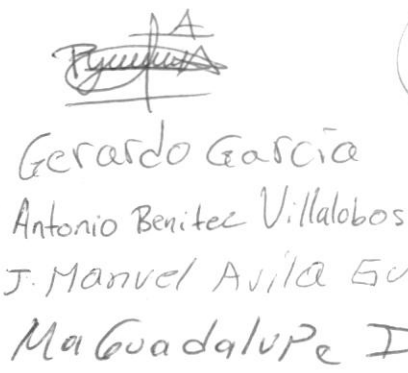 Gerardo García
Antonio Benitez Villalobos
J. Manuel Avila
Ma Guadalupe